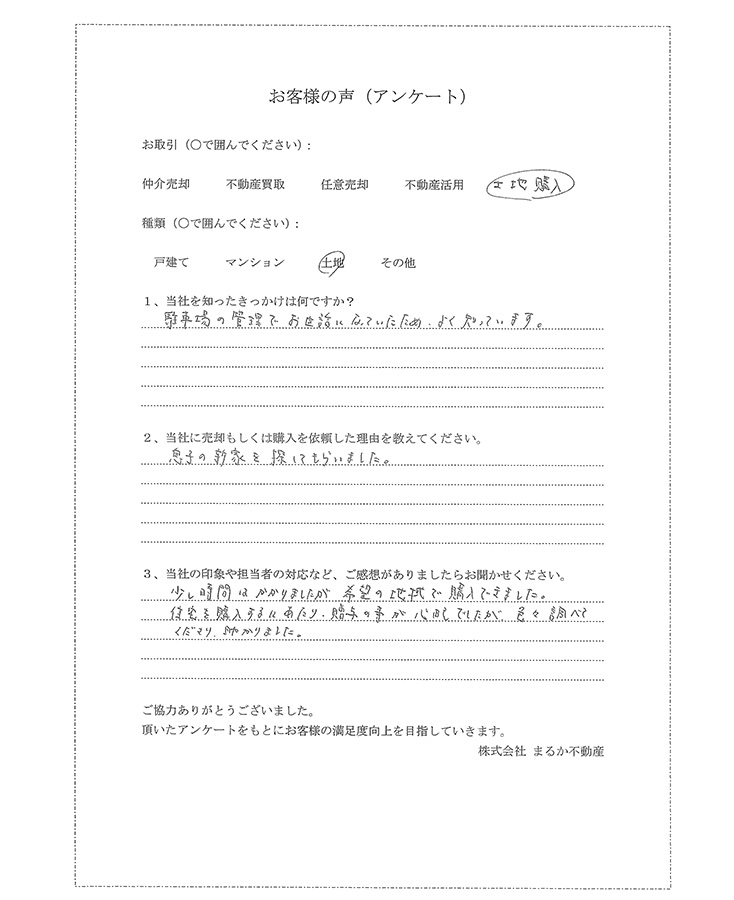 お客様の声（アンケート）
お取引（〇で囲んでください）:
仲介売却 不動産買取 任意売却 不動産活用 土地購入
種類（〇で囲んでください）:
戸建て マンション 土地 その他
1、当社を知ったきっかけは何ですか？
駐車場の管理でお世話になっていたため、よく知っています。
2、当社に売却もしくは購入を依頼した理由を教えてください。
息子の新家を探してもらいました。
3、当社の印象や担当者の対応など、ご感想がありましたらお聞かせください。
少し時間はかかりましたが希望の地域で購入できました。
住宅を購入するにあたり、贈与の事が心配でしたが、色々調べて
くださり、助かりました。
ご協力ありがとうございました。
頂いたアンケートをもとにお客様の満足度向上を目指していきます。
株式会社 まるか不動産